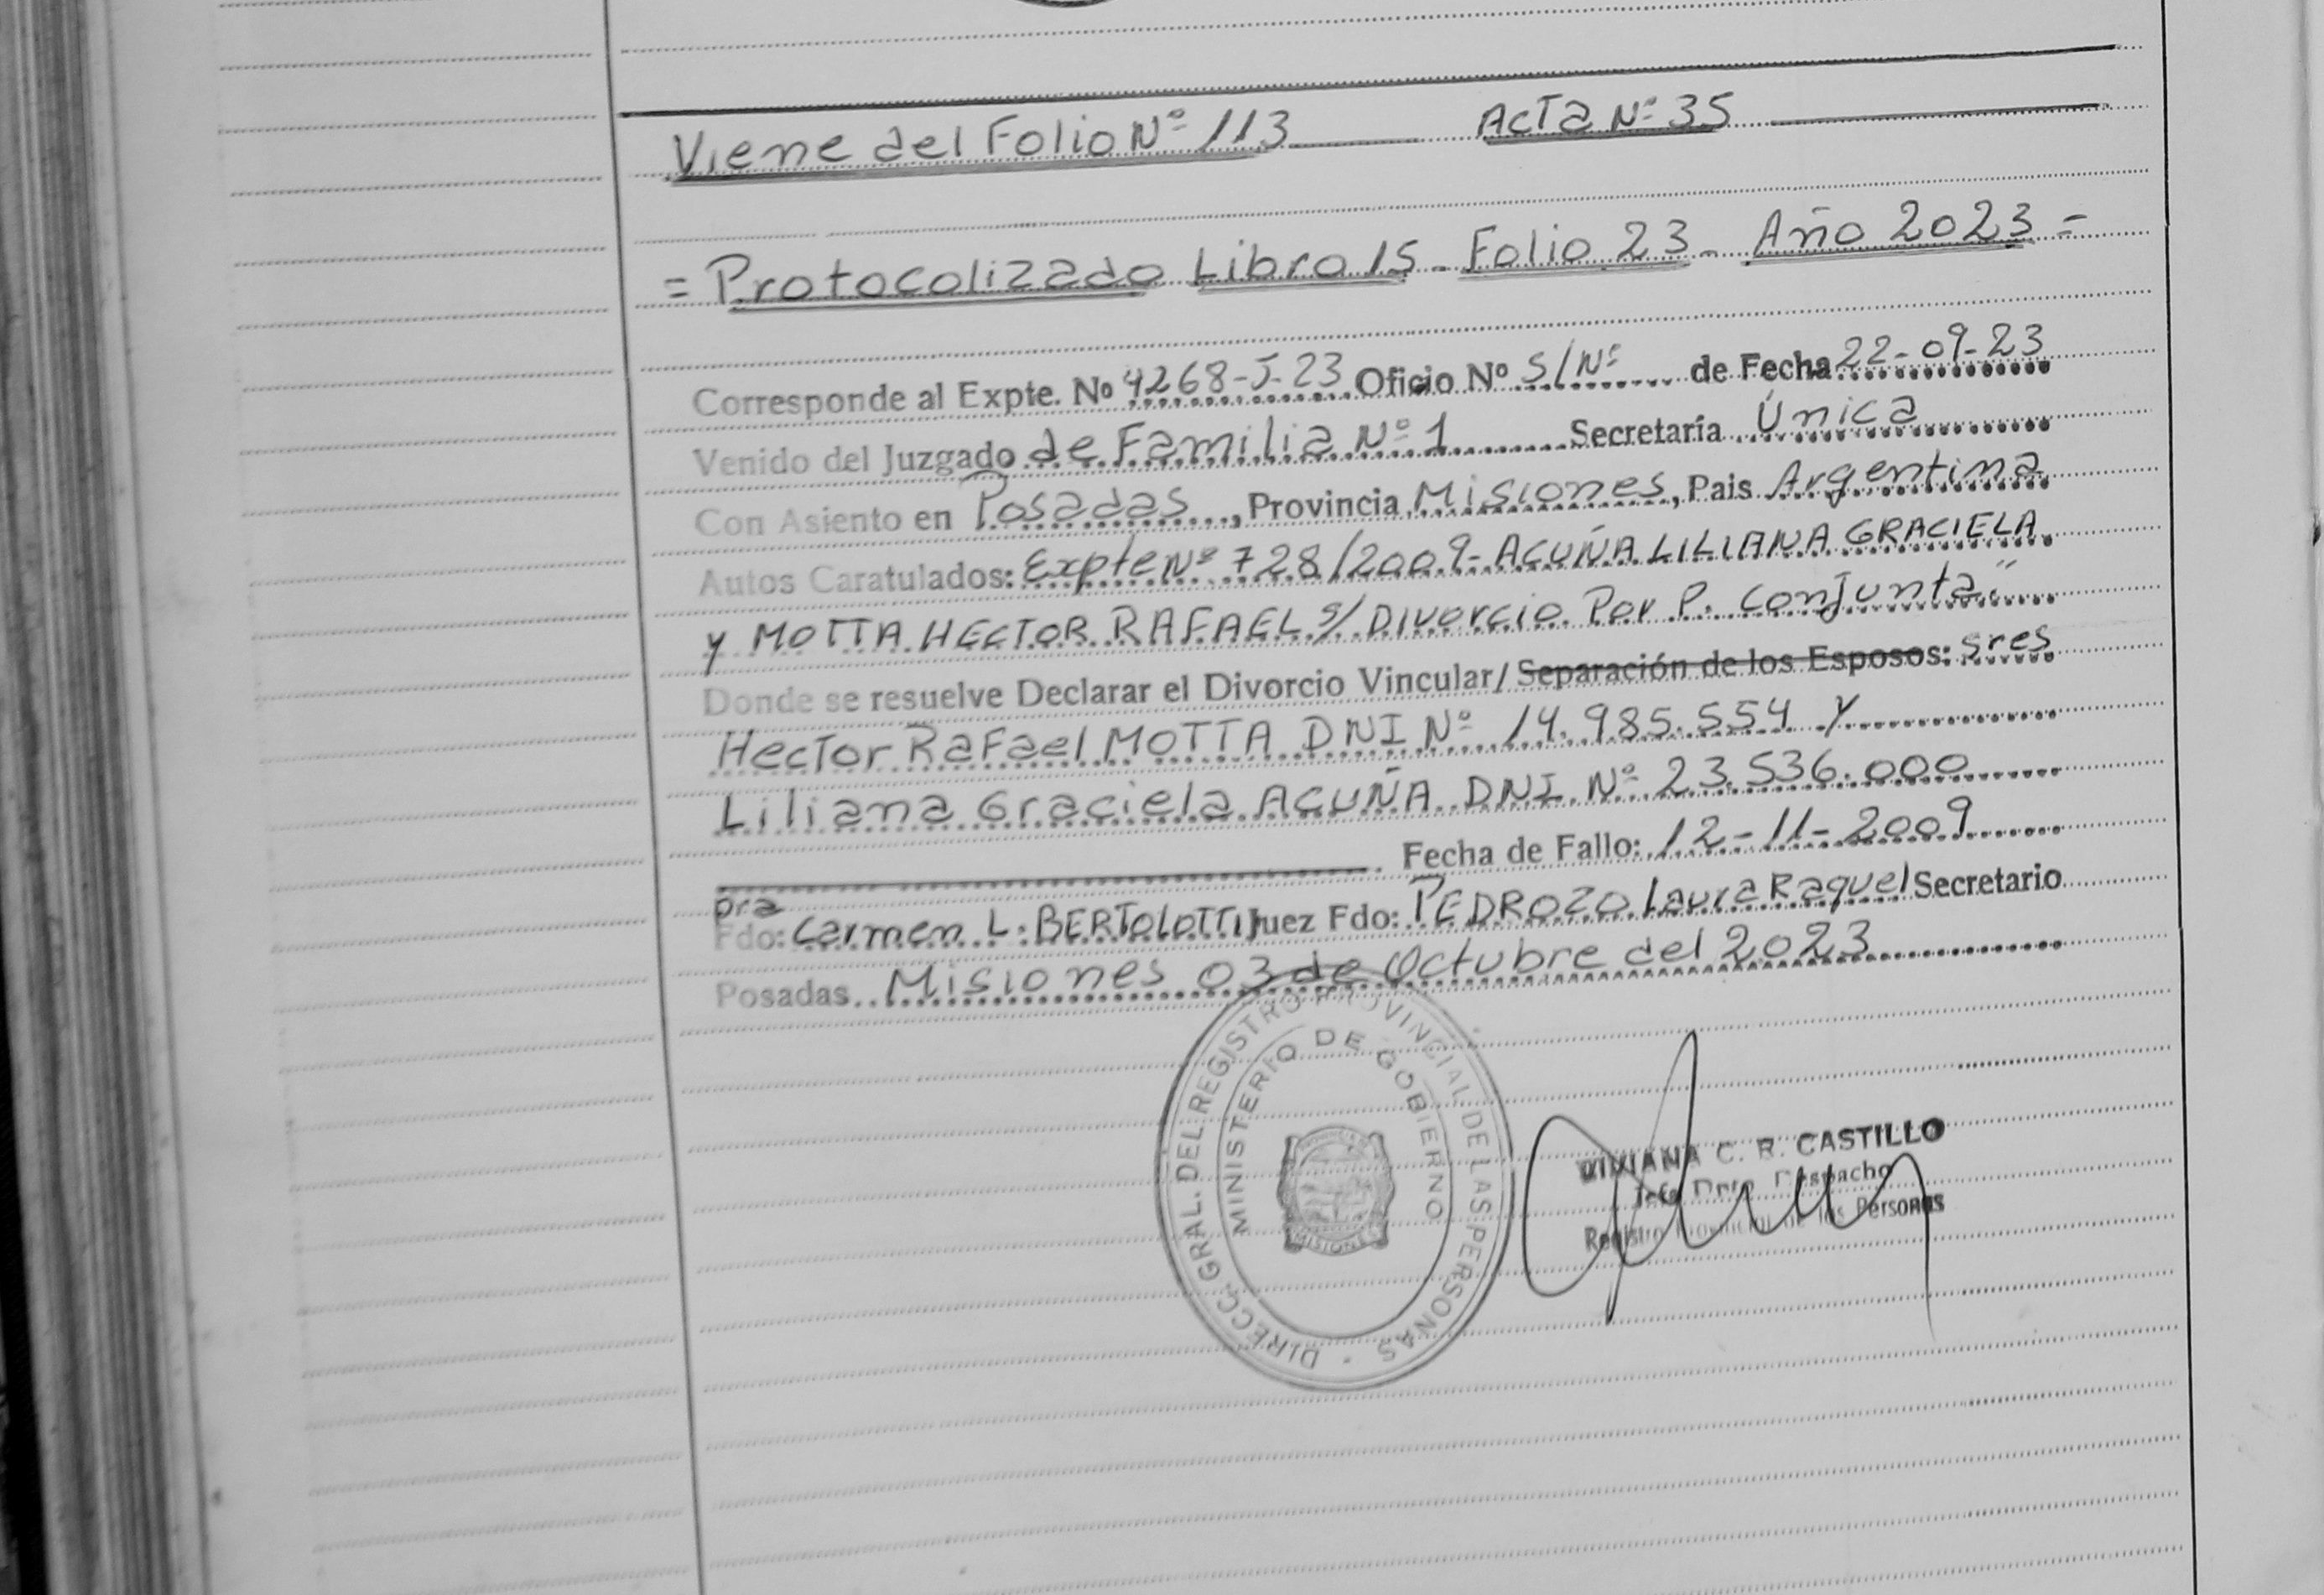 Viene del Folio Nº 113 Acta Nº 35
= Protocolizado Libro 15 - Folio 23 - Año 2023 =
Corresponde al Expte. Nº 4268-J-23 Oficio Nº S/Nº de Fecha 22-09-23
Venido del Juzgado de Familia Nº 1 Secretaría Única
Con Asiento en Posadas, Provincia Misiones, Pais Argentina
Autos Caratulados: Expte Nº 728/2009 - ACUÑA LILIANA GRACIELA
y MOTTA HECTOR RAFAEL s/ Divorcio Por P. Conjunta"
Donde se resuelve Declarar el Divorcio Vincular/ Separación de los Esposos: sres
Hector Rafael MOTTA DNI Nº 14.985.554 y
Liliana Graciela ACUÑA DNI Nº 23.536.000
Fecha de Fallo: 12-11-2009
Dra
Fdo: Carmen L. BERTOLOTTI Juez Fdo: PEDROZO Laura Raquel Secretario
Posadas Misiones 03 de Octubre del 2023
DIRECC. GRAL. DEL REGISTRO PROVINCIAL DE LAS PERSONAS
MINISTERIO DE GOBIERNO
MISIONES
C. R. CASTILLO
Jefe Dpto. Despacho
Registro Provincial de las Personas